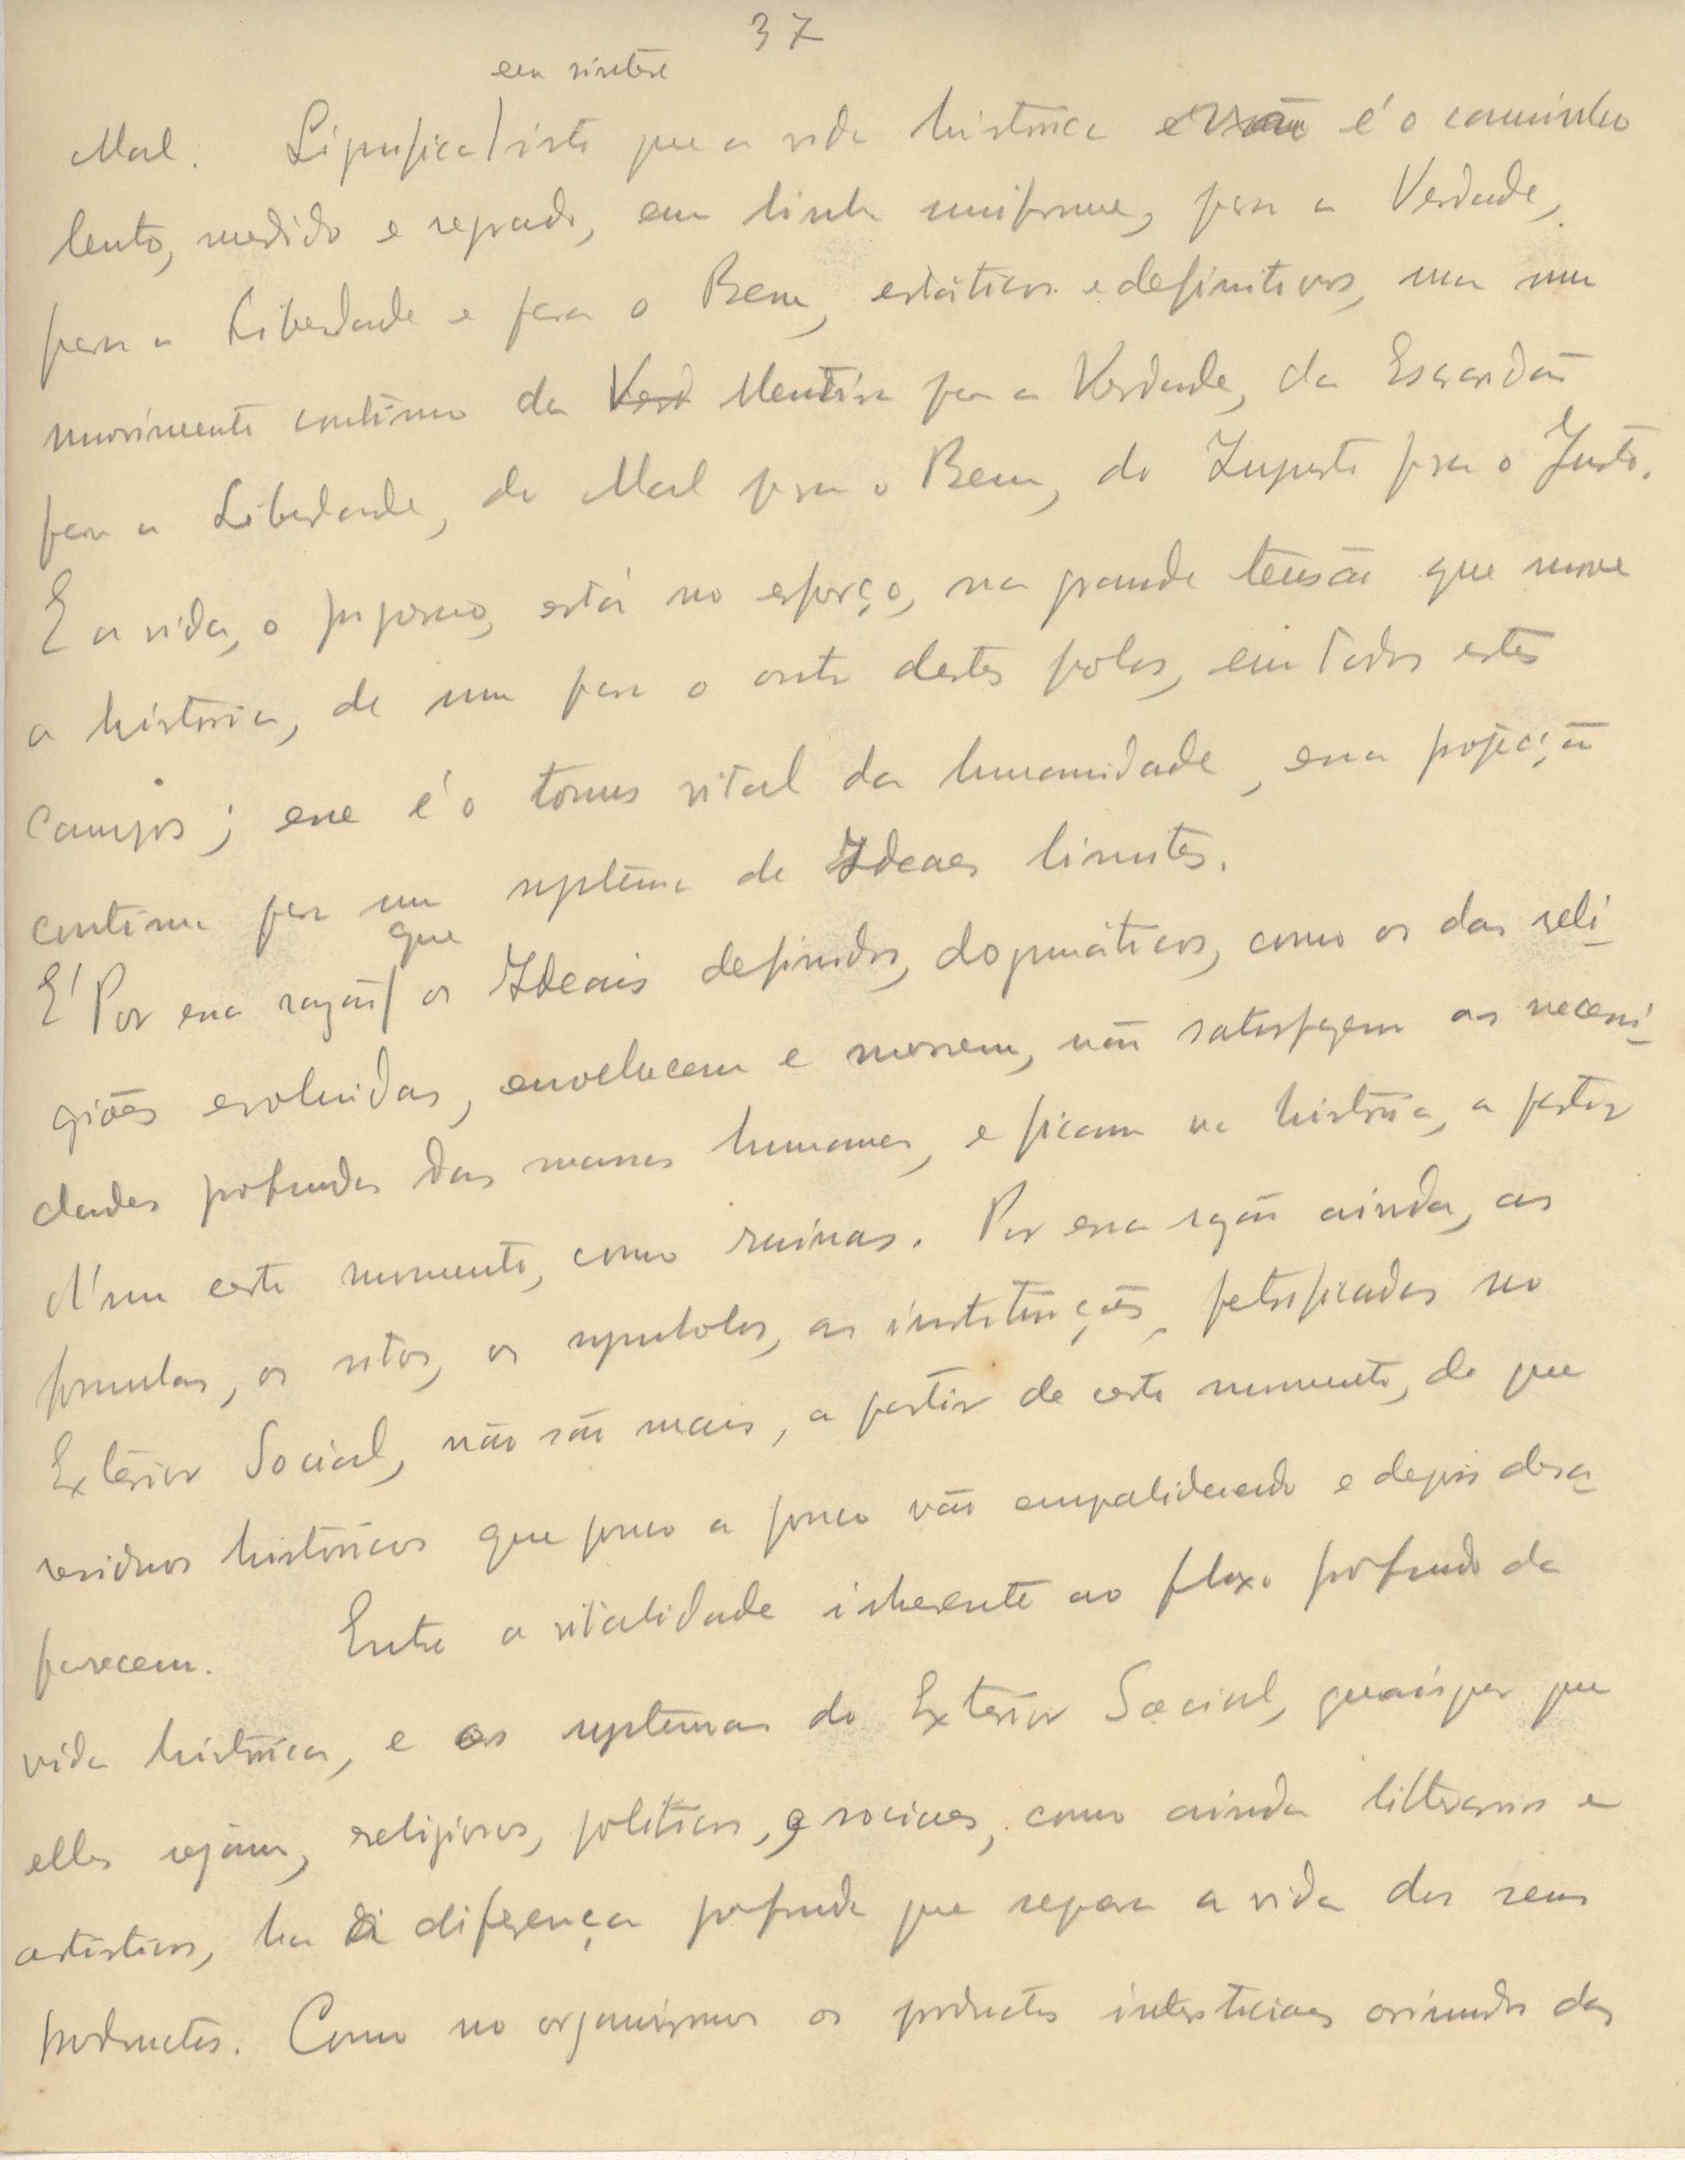 37
em sintese
Mal. Significa isto que a vida historica é o caminho
lento, medido e regrado, em linha uniforme, para a Verdade,
para a Liberdade e para o Bem, estáticos e definitivos, um
movimento continuo da Verd Mentira para a Verdade, da Escravidão
para a Liberdade, do Mal para o Bem, do Injusto para o Justo.
E a vida, o progresso, está no esforço, na grande tensão que move
a historia, de um para o outro destes polos, em todos estes
campos; esse é o tonus vital da humanidade, essa projecção
continua para um systema de Ideaes limites.
que
É Por essa razão os Ideais definidos, dogmáticos, como os das reli-
giões evoluidas, envelhecem e morrem, não satisfazem as necessi-
dades profundas das massas humanas, e ficam na história, a partir
d'um certo momento, como ruinas. Por essa razão ainda, as
formulas, os ritos, os symbolos, as instituições, petrificadas no
Exterior Social, não são mais, a partir de certo momento, do que
residuos historicos que pouco a pouco vão empalidecendo e depois desa-
parecem. Entre a vitalidade inherente ao fluxo profundo da
vida histórica, e os systemas do Exterior Social, quaisquer que
elles sejam, religiosos, politicos, e sociaes, como ainda litterarios e
artisticos, ha a diferença profunda que separa a vida dos seus
productos. Como no organismos os productos intersticiaes oriundos das